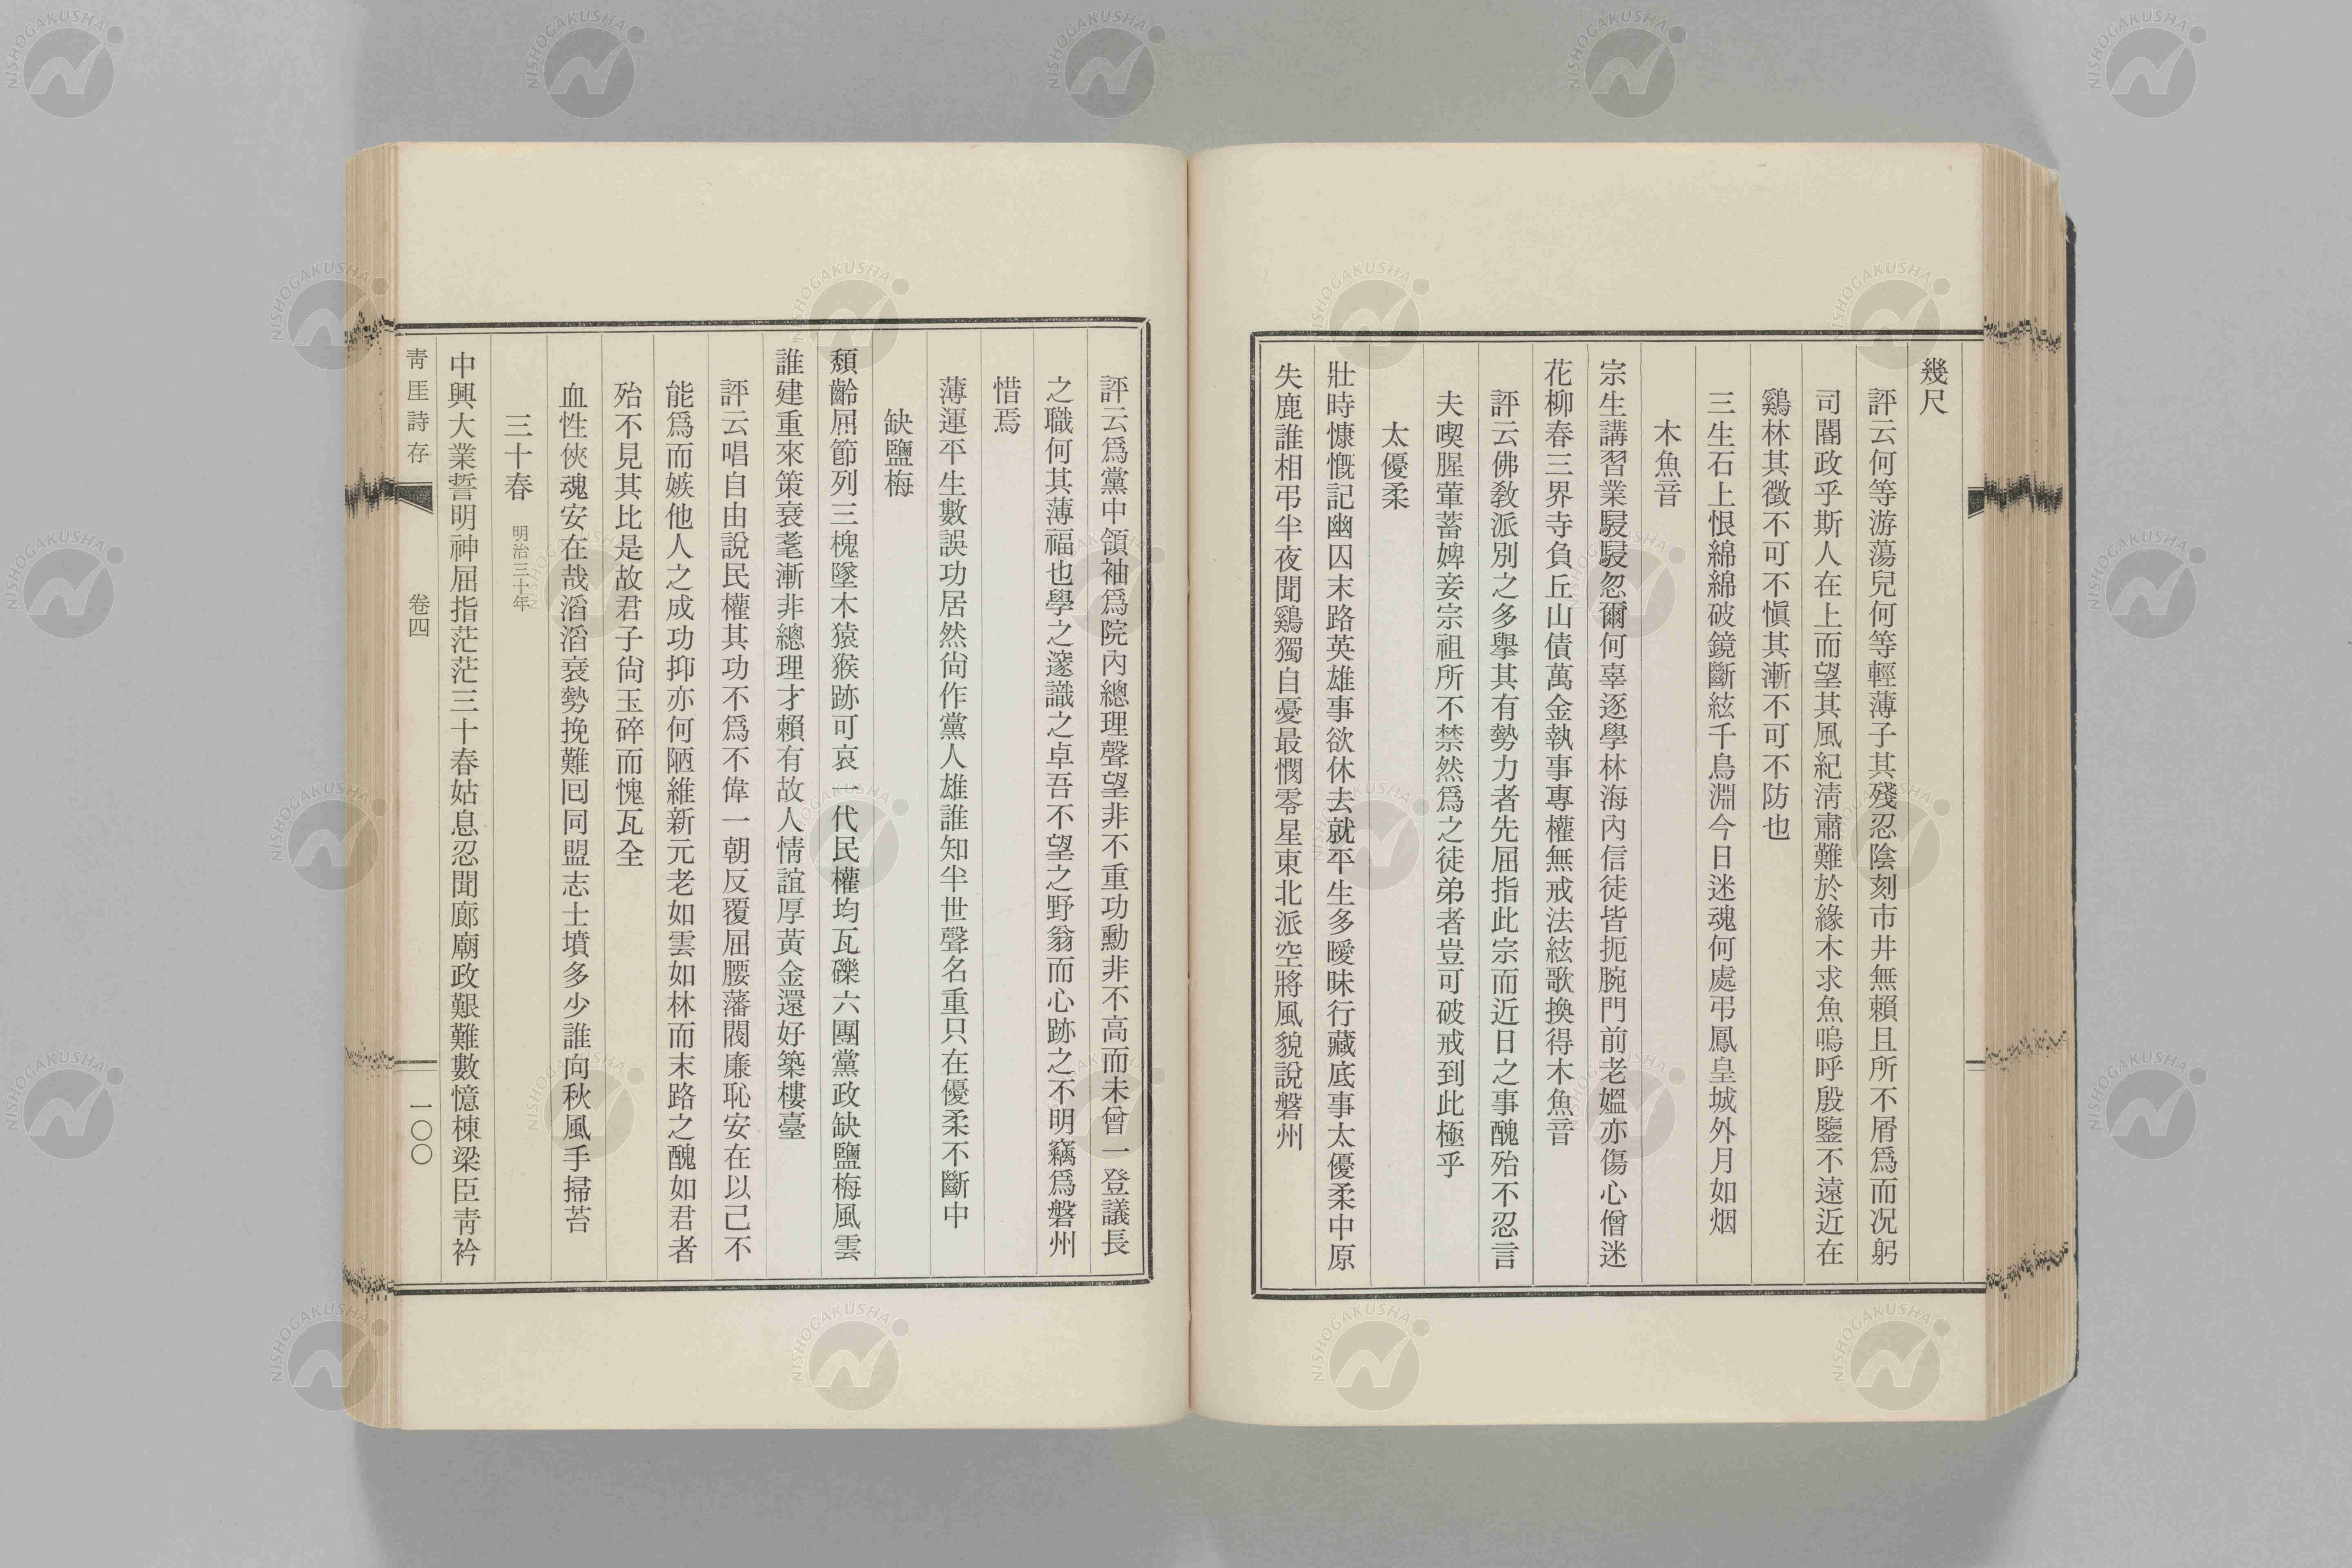 幾尺
評云何等游蕩兒何等輕薄子其殘忍陰刻市井無賴且所不屑爲而況躬
司閫政乎斯人在上而望其風紀淸肅難於緣木求魚嗚呼殷鑒不遠近在
鷄林其徵不可不愼其漸不可不防也
三生石上恨綿綿破鏡斷絃千鳥淵今日迷魂何處弔鳳皇城外月如烟
木魚音
宗生講習業駸駸忽爾何辜逐學林海內信徒皆扼腕門前老媼亦傷心僧迷
花柳春三界寺負丘山債萬金執事專權無戒法絃歌換得木魚音
評云佛敎派別之多擧其有勢力者先屈指此宗而近日之事醜殆不忍言
夫喫腥葷蓄婢妾宗祖所不禁然爲之徒弟者豈可破戒到此極乎
太優柔
壯時慷慨記幽囚末路英雄事欲休去就平生多曖昧行藏底事太優柔中原
失鹿誰相弔半夜聞鷄獨自憂最憫零星東北派空將風貌說磐州
評云爲黨中領袖爲院內總理聲望非不重功勳非不高而未曾一登議長
之職何其薄福也學之邃識之卓吾不望之野翁而心跡之不明竊爲磐州
惜焉
薄運平生數誤功居然尙作黨人雄誰知半世聲名重只在優柔不斷中
缺鹽梅
頹齡屈節列三槐墜木猿猴跡可哀一代民權均瓦礫六團黨政缺鹽梅風雲
誰建重來策衰耄漸非總理才賴有故人情誼厚黃金還好築樓臺
評云唱自由說民權其功不爲不偉一朝反覆屈腰藩閥廉恥安在以己不
能爲而嫉他人之成功抑亦何陋維新元老如雲如林而末路之醜如君者
殆不見其比是故君子尙玉碎而愧瓦全
血性俠魂安在哉滔滔衰勢挽難回同盟志士墳多少誰向秋風手掃苔
三十春 明治三十年
中興大業誓明神屈指茫茫三十春姑息忍聞廊廟政艱難數憶棟梁臣靑衿
靑厓詩存 卷四 一〇〇
NISHOGAKUSHA